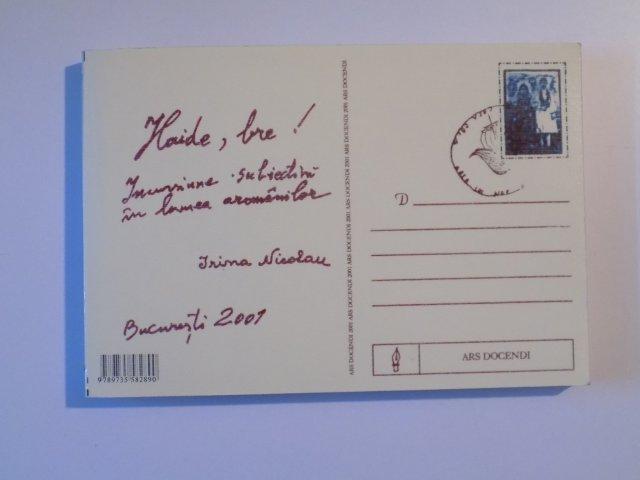 Haide, bre!
Incursiune subiectivă
în lumea aromânilor
Irina Nicolau
București 2001
9789735582890
ARS DOCENDI 2001 ARS DOCENDI 2001 ARS DOCENDI 2001 ARS DOCENDI 2001 ARS DOCENDI 2001 ARS DOCENDI
D
ARS DOCENDI